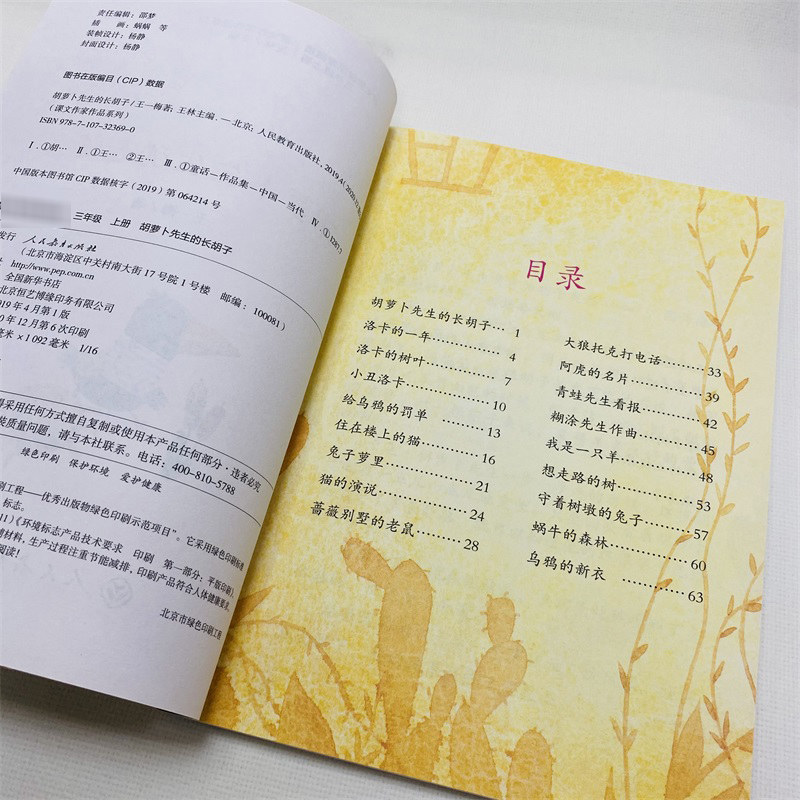 责任编辑：邵梦
插 画：蜗蜗 等
装帧设计：杨静
封面设计：杨静
图书在版编目（CIP）数据
胡萝卜先生的长胡子/王一梅著；王林主编.—北京：人民教育出版社，2019.4
（课文作家作品系列）
ISBN 978-7-107-32369-0
Ⅰ.①胡… Ⅱ.①王… ②王… Ⅲ.①童话—作品集—中国—当代 Ⅳ.①I287.7
中国版本图书馆CIP数据核字（2019）第064214号
三年级 上册 胡萝卜先生的长胡子
发行 人民教育出版社
（北京市海淀区中关村南大街17号院1号楼 邮编：100081）
http://www.pep.com.cn
全国新华书店
北京恒艺博缘印务有限公司
19年4月第1版
0年12月第6次印刷
毫米×1092毫米 1/16
得采用任何方式擅自复制或使用本产品任何部分·违者必究
装质量问题，请与本社联系。电话：400-810-5788
绿色印刷 保护环境 爱护健康
刷工程——优秀出版物绿色印刷示范项目”。它采用绿色印刷标准
标志。
11）《环境标志产品技术要求 印刷 第一部分：平版印刷》，
辅材料，生产过程注重节能减排，印刷产品符合人体健康要求。
阅读！
北京市绿色印刷工程
目录
胡萝卜先生的长胡子… 1
洛卡的一年…………… 4
洛卡的树叶…………… 7
小丑洛卡…………… 10
给乌鸦的罚单………… 13
住在楼上的猫………… 16
兔子萝里…………… 21
猫的演说…………… 24
蔷薇别墅的老鼠……… 28
大狼托克打电话……… 33
阿虎的名片………… 39
青蛙先生看报……… 42
糊涂先生作曲……… 45
我是一只羊………… 48
想走路的树………… 53
守着树墩的兔子…… 57
蜗牛的森林………… 60
乌鸦的新衣 ………… 63